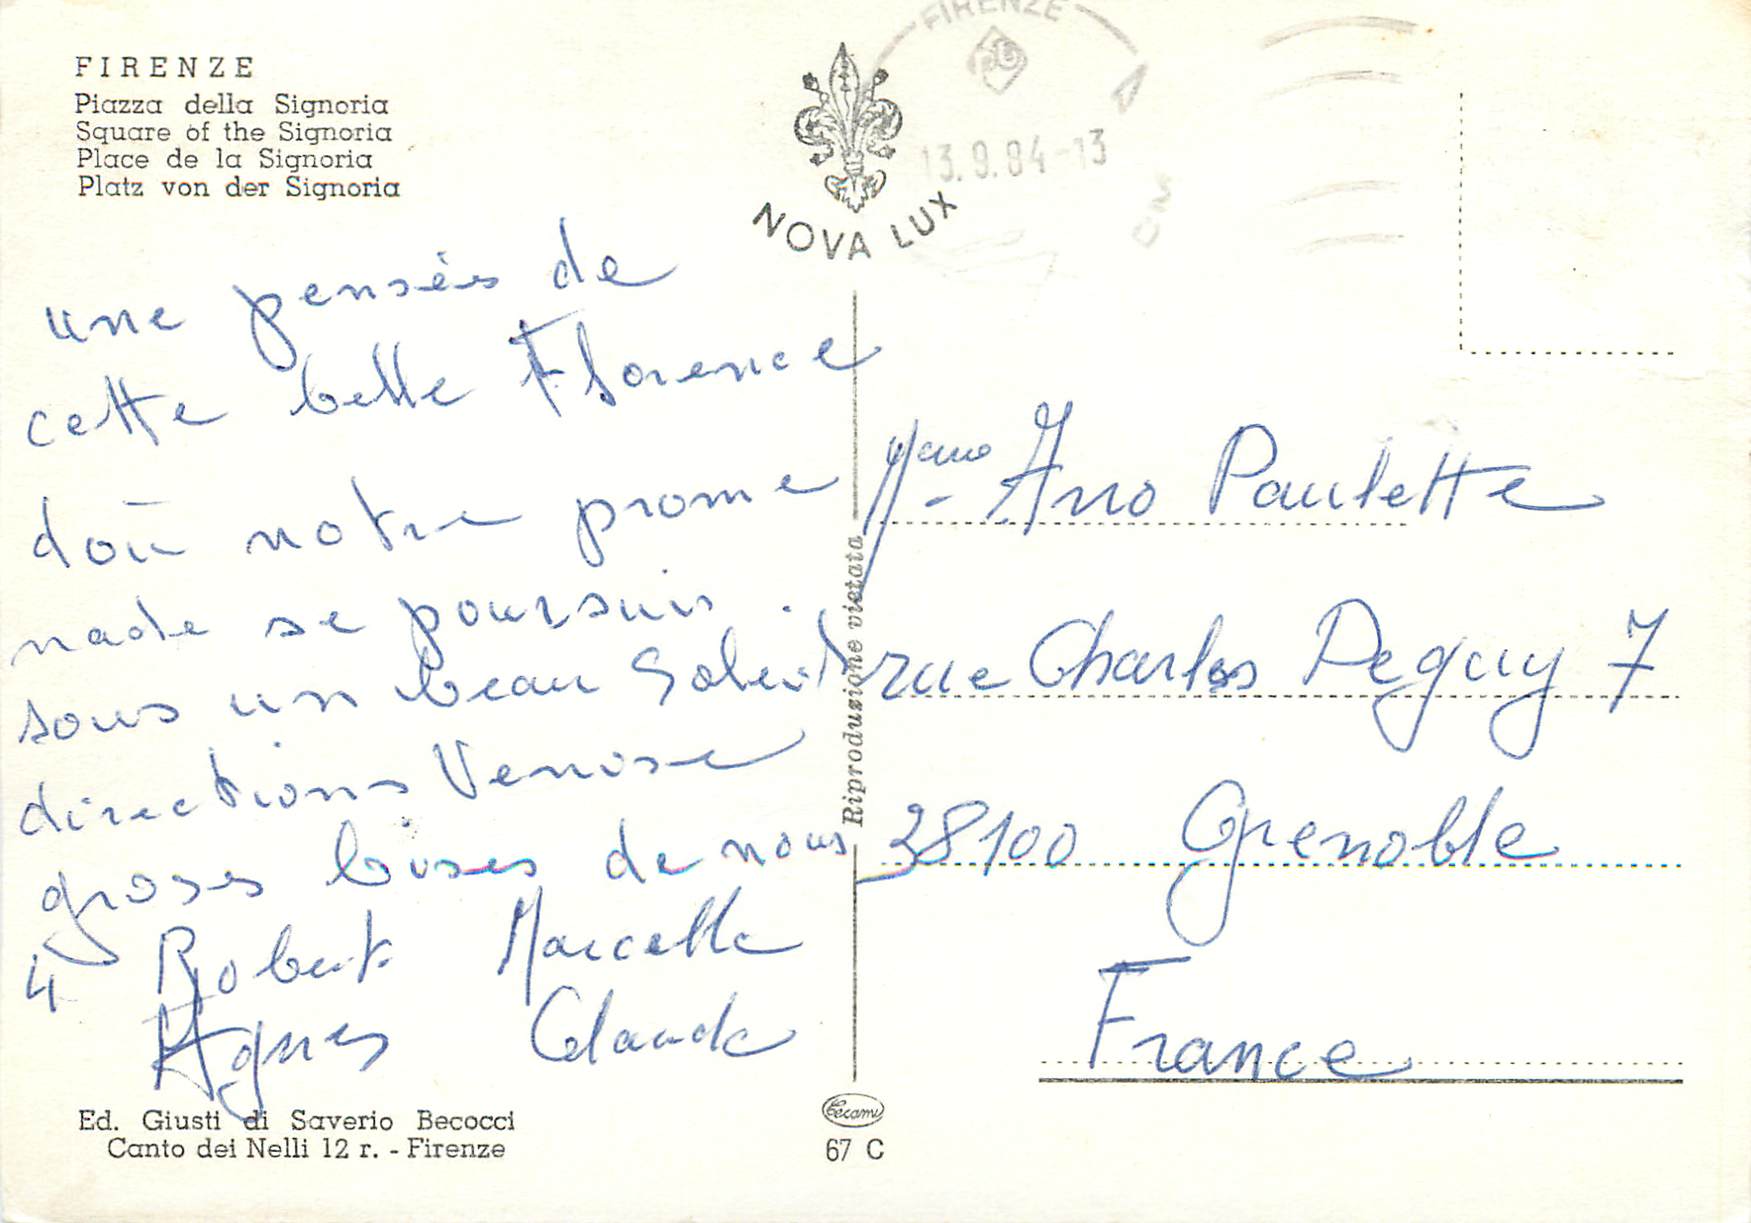 FIRENZE
Piazza della Signoria
Square of the Signoria
Place de la Signoria
Platz von der Signoria
NOVA LUX
FIRENZE
13.9.84-13
une pensées de
cette belle Florence
doù notre prome
nade se poursuis
sous un beau Soleil
directions Venise
groses bises de nous
4 Robert Marcelle
Agnes Claude
Ed. Giusti di Saverio Becocci
Canto dei Nelli 12 r. - Firenze
Riproduzione vietata
Cecami
67 C
Paulette
rue Charles Peguy 7
38100 Grenoble
France